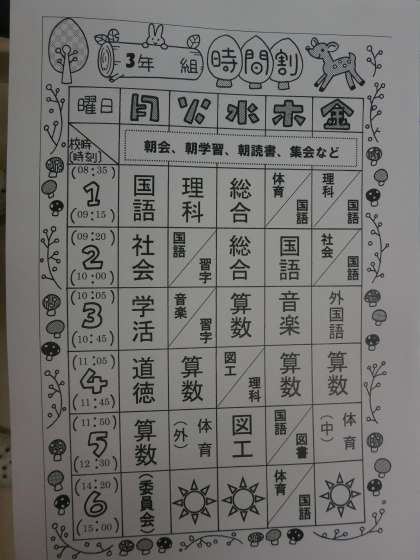 3年 組 時間割
曜日 月 火 水 木 金
校時
(時刻) 朝会、朝学習、朝読書、集会など
(08:35)
1
(09:15) 国語 理科 総合 体育 国語 理科 国語
(09:20)
2
(10:00) 社会 国語 習字 総合 国語 社会 国語
(10:05)
3
(10:45) 学活 音楽 習字 算数 音楽 外国語
(11:05)
4
(11:45) 道徳 算数 図工 理科 算数 算数
(11:50)
5
(12:30) 算数 (外) 体育 図工 国語 図書 (中) 体育
(14:20)
6
(15:00) (委員会) 体育 国語